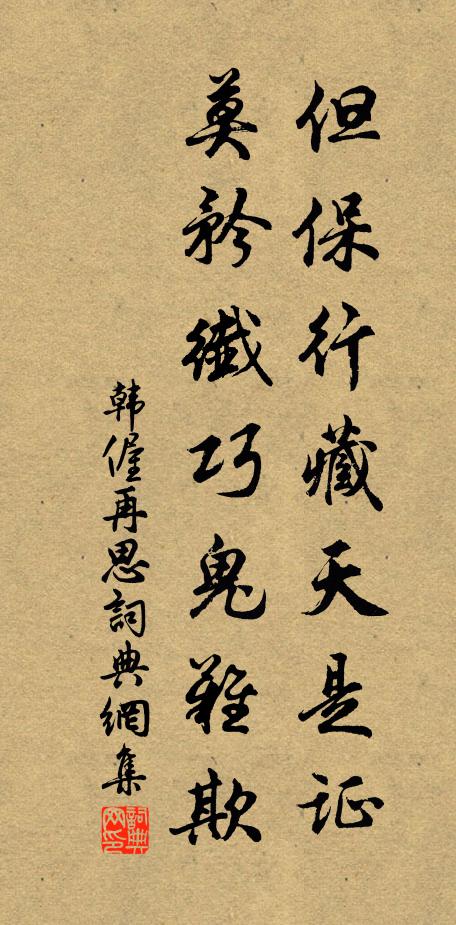 但保行藏天是证
莫矜纖巧鬼難欺
韩偓再思詞典網集
詞典網印